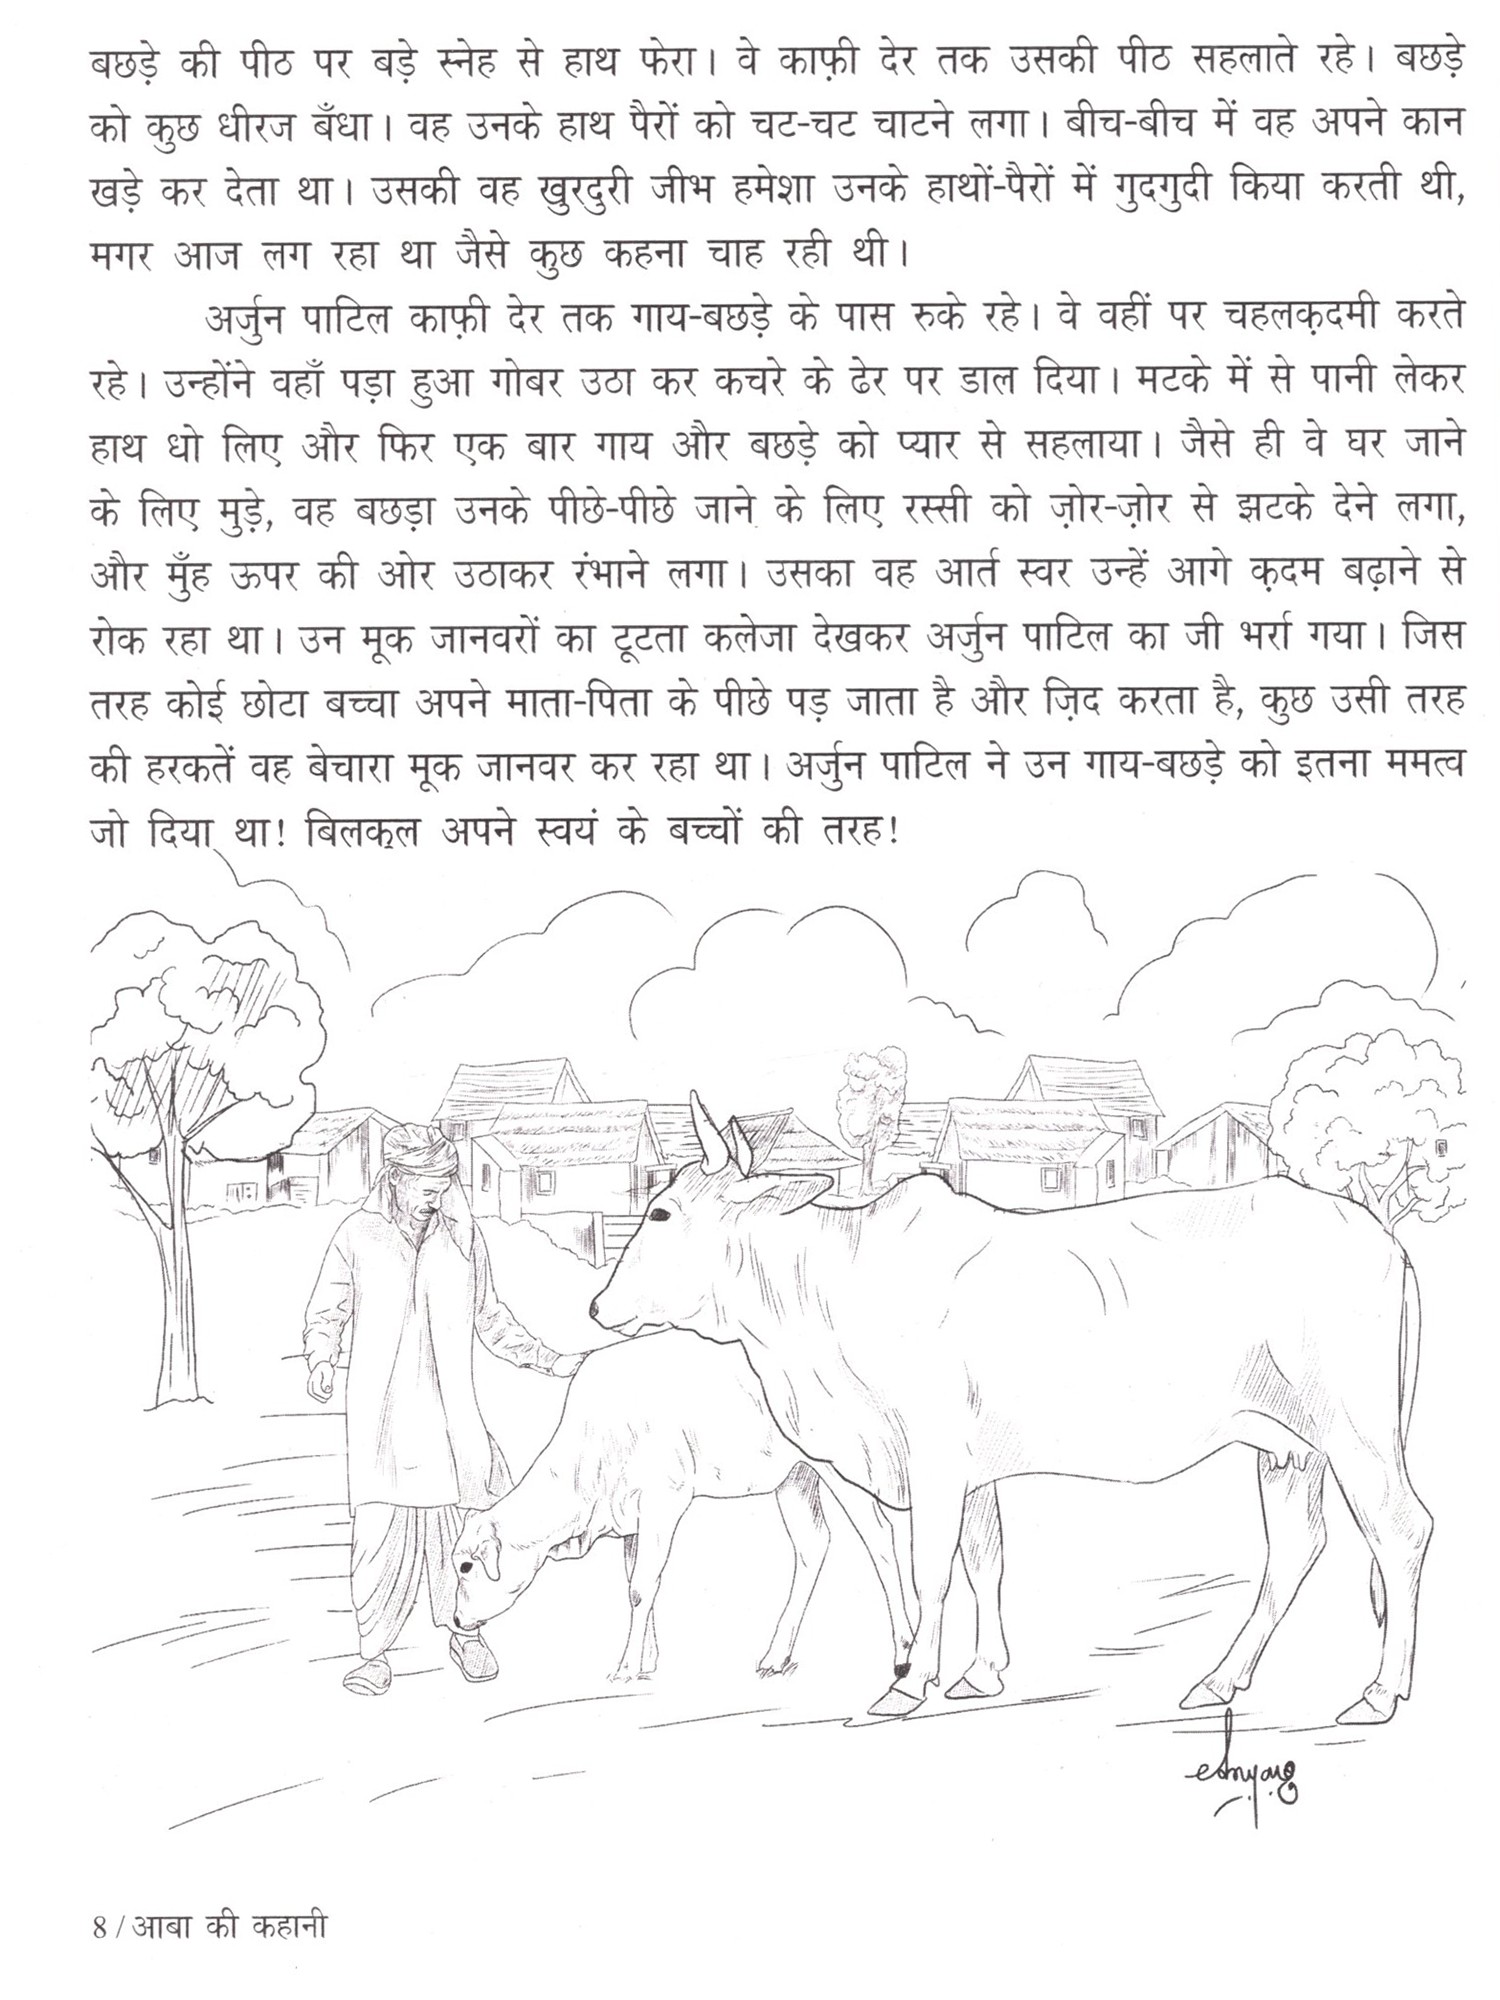 बछड़े की पीठ पर बड़े स्नेह से हाथ फेरा। वे काफ़ी देर तक उसकी पीठ सहलाते रहे। बछड़े
को कुछ धीरज बँधा। वह उनके हाथ पैरों को चट-चट चाटने लगा। बीच-बीच में वह अपने कान
खड़े कर देता था। उसकी वह खुरदुरी जीभ हमेशा उनके हाथों-पैरों में गुदगुदी किया करती थी,
मगर आज लग रहा था जैसे कुछ कहना चाह रही थी।
अर्जुन पाटिल काफ़ी देर तक गाय-बछड़े के पास रुके रहे। वे वहीं पर चहलक़दमी करते
रहे। उन्होंने वहाँ पड़ा हुआ गोबर उठा कर कचरे के ढेर पर डाल दिया। मटके में से पानी लेकर
हाथ धो लिए और फिर एक बार गाय और बछड़े को प्यार से सहलाया। जैसे ही वे घर जाने
के लिए मुड़े, वह बछड़ा उनके पीछे-पीछे जाने के लिए रस्सी को ज़ोर-ज़ोर से झटके देने लगा,
और मुँह ऊपर की ओर उठाकर रंभाने लगा। उसका वह आर्त स्वर उन्हें आगे क़दम बढ़ाने से
रोक रहा था। उन मूक जानवरों का टूटता कलेजा देखकर अर्जुन पाटिल का जी भर्रा गया। जिस
तरह कोई छोटा बच्चा अपने माता-पिता के पीछे पड़ जाता है और ज़िद करता है, कुछ उसी तरह
की हरकतें वह बेचारा मूक जानवर कर रहा था। अर्जुन पाटिल ने उन गाय-बछड़े को इतना ममत्व
जो दिया था! बिलकुल अपने स्वयं के बच्चों की तरह!
8 / आबा की कहानी